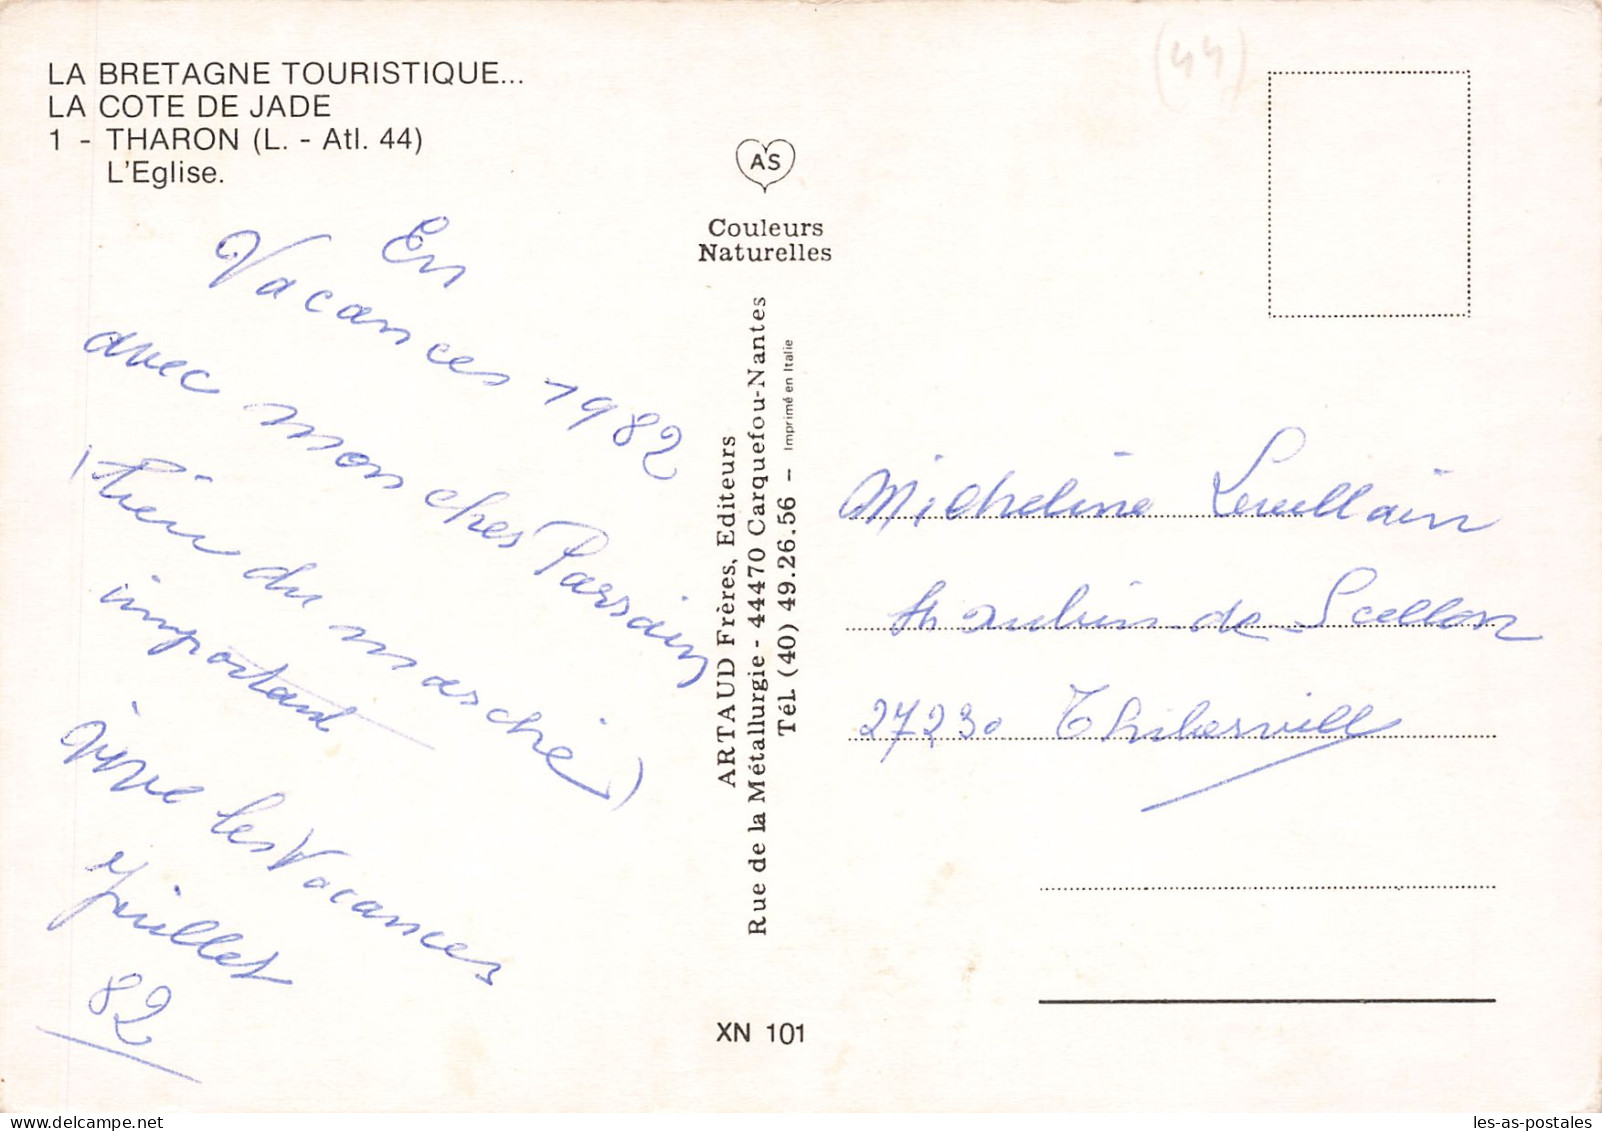 LA BRETAGNE TOURISTIQUE...
LA COTE DE JADE
1 - THARON (L. - Atl. 44)
L'Eglise.
En
Vacances 1982
avec mon cher Parrain
(rien du marché)
important
vive les Vacances
Juillet
82
AS
Couleurs
Naturelles
ARTAUD Frères, Editeurs
Rue de la Métallurgie - 44470 Carquefou-Nantes
Tél. (40) 49.26.56 - Imprimé en Italie
XN 101
(44)
Micheline
St Aubin-de-Scellon
27230 Thiberville
les-as-postales